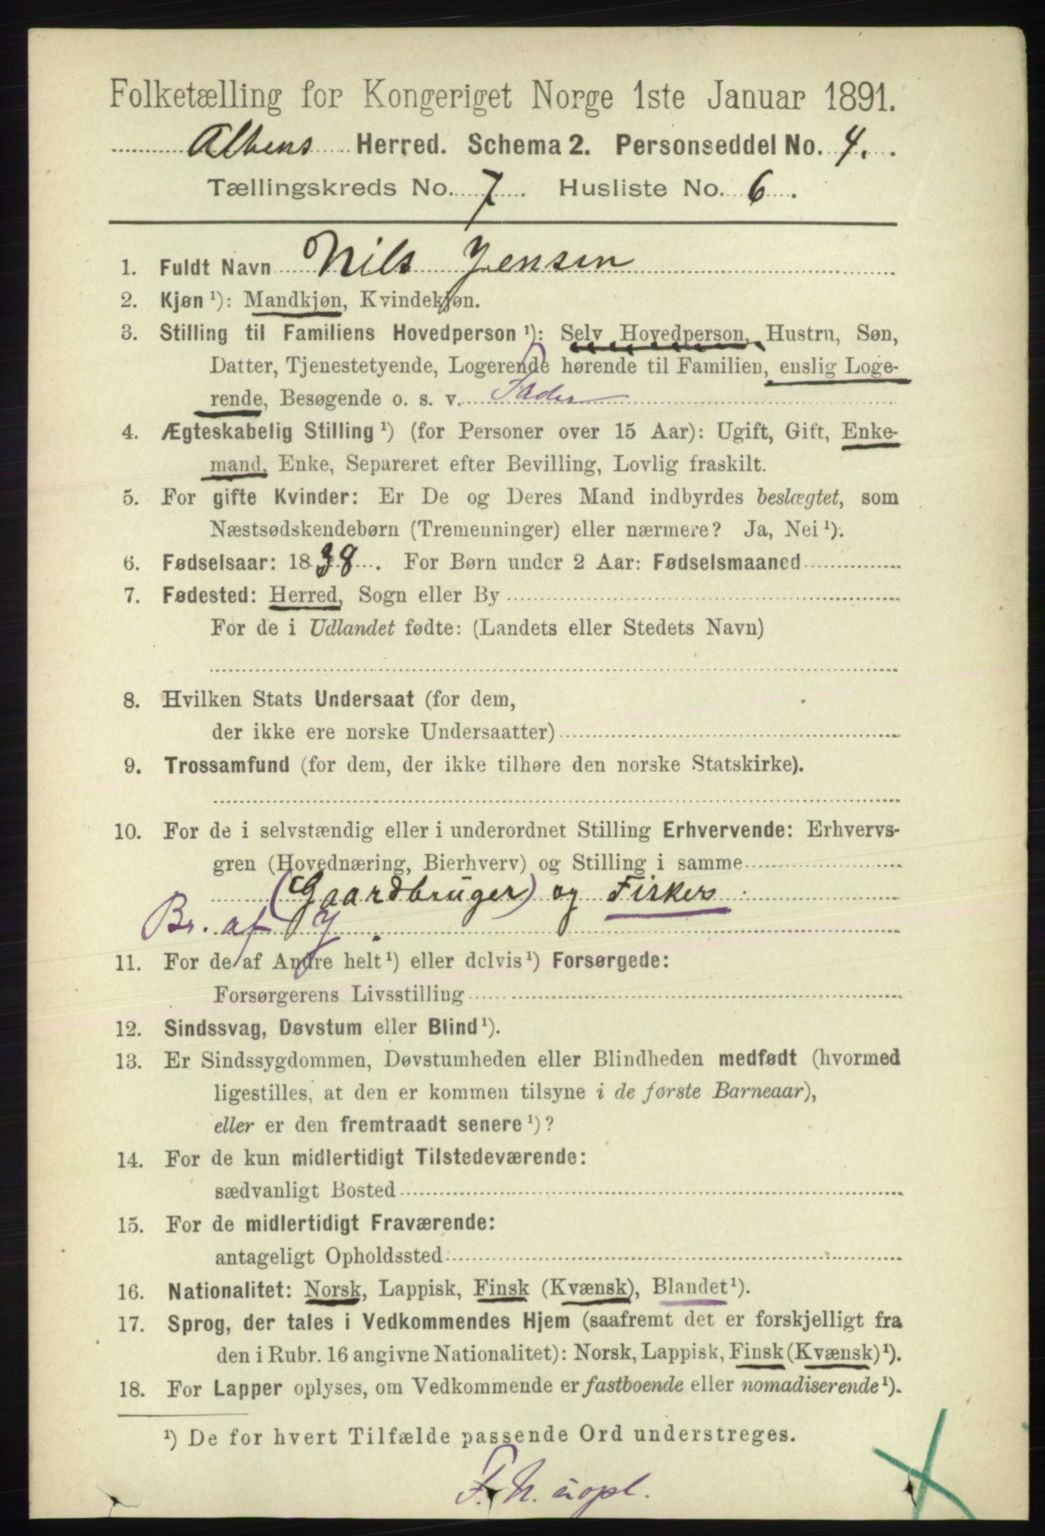 Folketælling for Kongeriget Norge 1ste Januar 1891.
Altens Herred. Schema 2. Personseddel No. 4.
Tællingskreds No. 7. Husliste No. 6.
1. Fuldt Navn Nils Jensen
2. Kjøn ¹): Mandkjøn, Kvindekjøn.
3. Stilling til Familiens Hovedperson ¹): Selv Hovedperson, Hustru, Søn,
Datter, Tjenestetyende, Logerende hørende til Familien, enslig Loge-
rende, Besøgende o. s. v. Fader
4. Ægteskabelig Stilling ¹) (for Personer over 15 Aar): Ugift, Gift, Enke-
mand, Enke, Separeret efter Bevilling, Lovlig fraskilt.
5. For gifte Kvinder: Er De og Deres Mand indbyrdes beslægtet, som
Næstsødskendebørn (Tremenninger) eller nærmere? Ja, Nei ¹).
6. Fødselsaar: 1838. For Børn under 2 Aar: Fødselsmaaned
7. Fødested: Herred, Sogn eller By
For de i Udlandet fødte: (Landets eller Stedets Navn)
8. Hvilken Stats Undersaat (for dem,
der ikke ere norske Undersaatter)
9. Trossamfund (for dem, der ikke tilhøre den norske Statskirke).
10. For de i selvstændig eller i underordnet Stilling Erhvervende: Erhvervs-
gren (Hovednæring, Bierhverv) og Stilling i samme
(Gaardbruger) og Fisker.
Br. af J.
11. For de af Andre helt ¹) eller delvis ¹) Forsørgede:
Forsørgerens Livsstilling
12. Sindssvag, Døvstum eller Blind ¹).
13. Er Sindssygdommen, Døvstumheden eller Blindheden medfødt (hvormed
ligestilles, at den er kommen tilsyne i de første Barneaar),
eller er den fremtraadt senere ¹)?
14. For de kun midlertidigt Tilstedeværende:
sædvanligt Bosted
15. For de midlertidigt Fraværende:
antageligt Opholdssted
16. Nationalitet: Norsk, Lappisk, Finsk (Kvænsk), Blandet ¹).
17. Sprog, der tales i Vedkommendes Hjem (saafremt det er forskjelligt fra
den i Rubr. 16 angivne Nationalitet): Norsk, Lappisk, Finsk (Kvænsk) ¹).
18. For Lapper oplyses, om Vedkommende er fastboende eller nomadiserende ¹).
¹) De for hvert Tilfælde passende Ord understreges.
F. N.